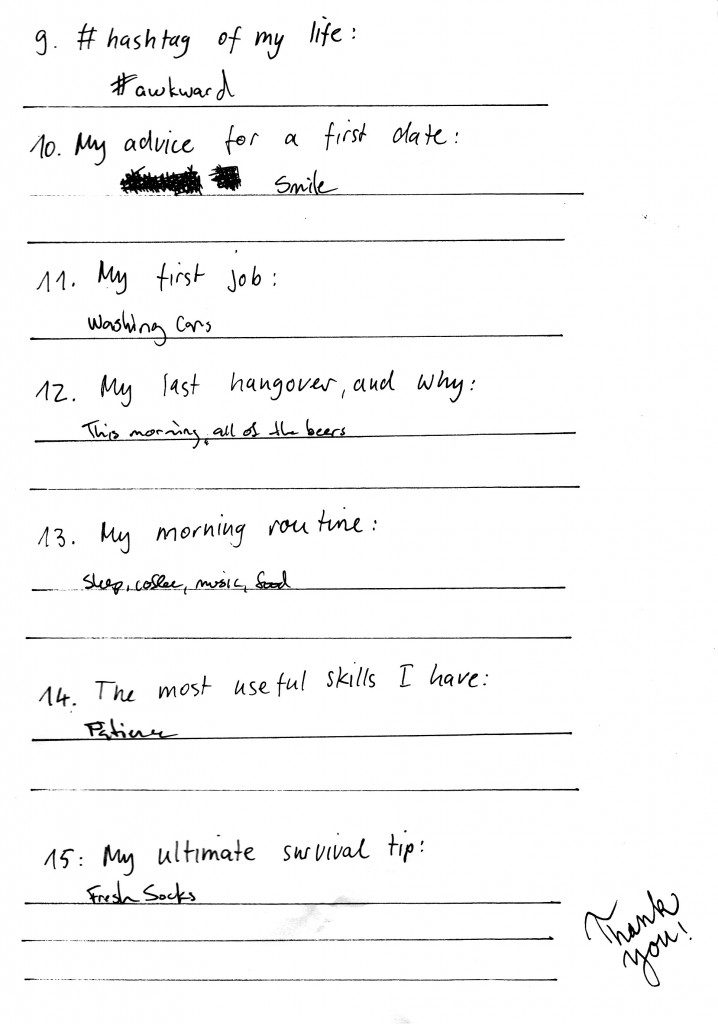 9. #hashtag of my life:
#awkward
10. My advice for a first date:
Smile
11. My first job:
Washing Cars
12. My last hangover, and why:
This morning, all of the beers
13. My morning routine:
Sleep, coffee, music, food
14. The most useful skills I have:
Patience
15: My ultimate survival tip:
Fresh Socks
Thank
you!